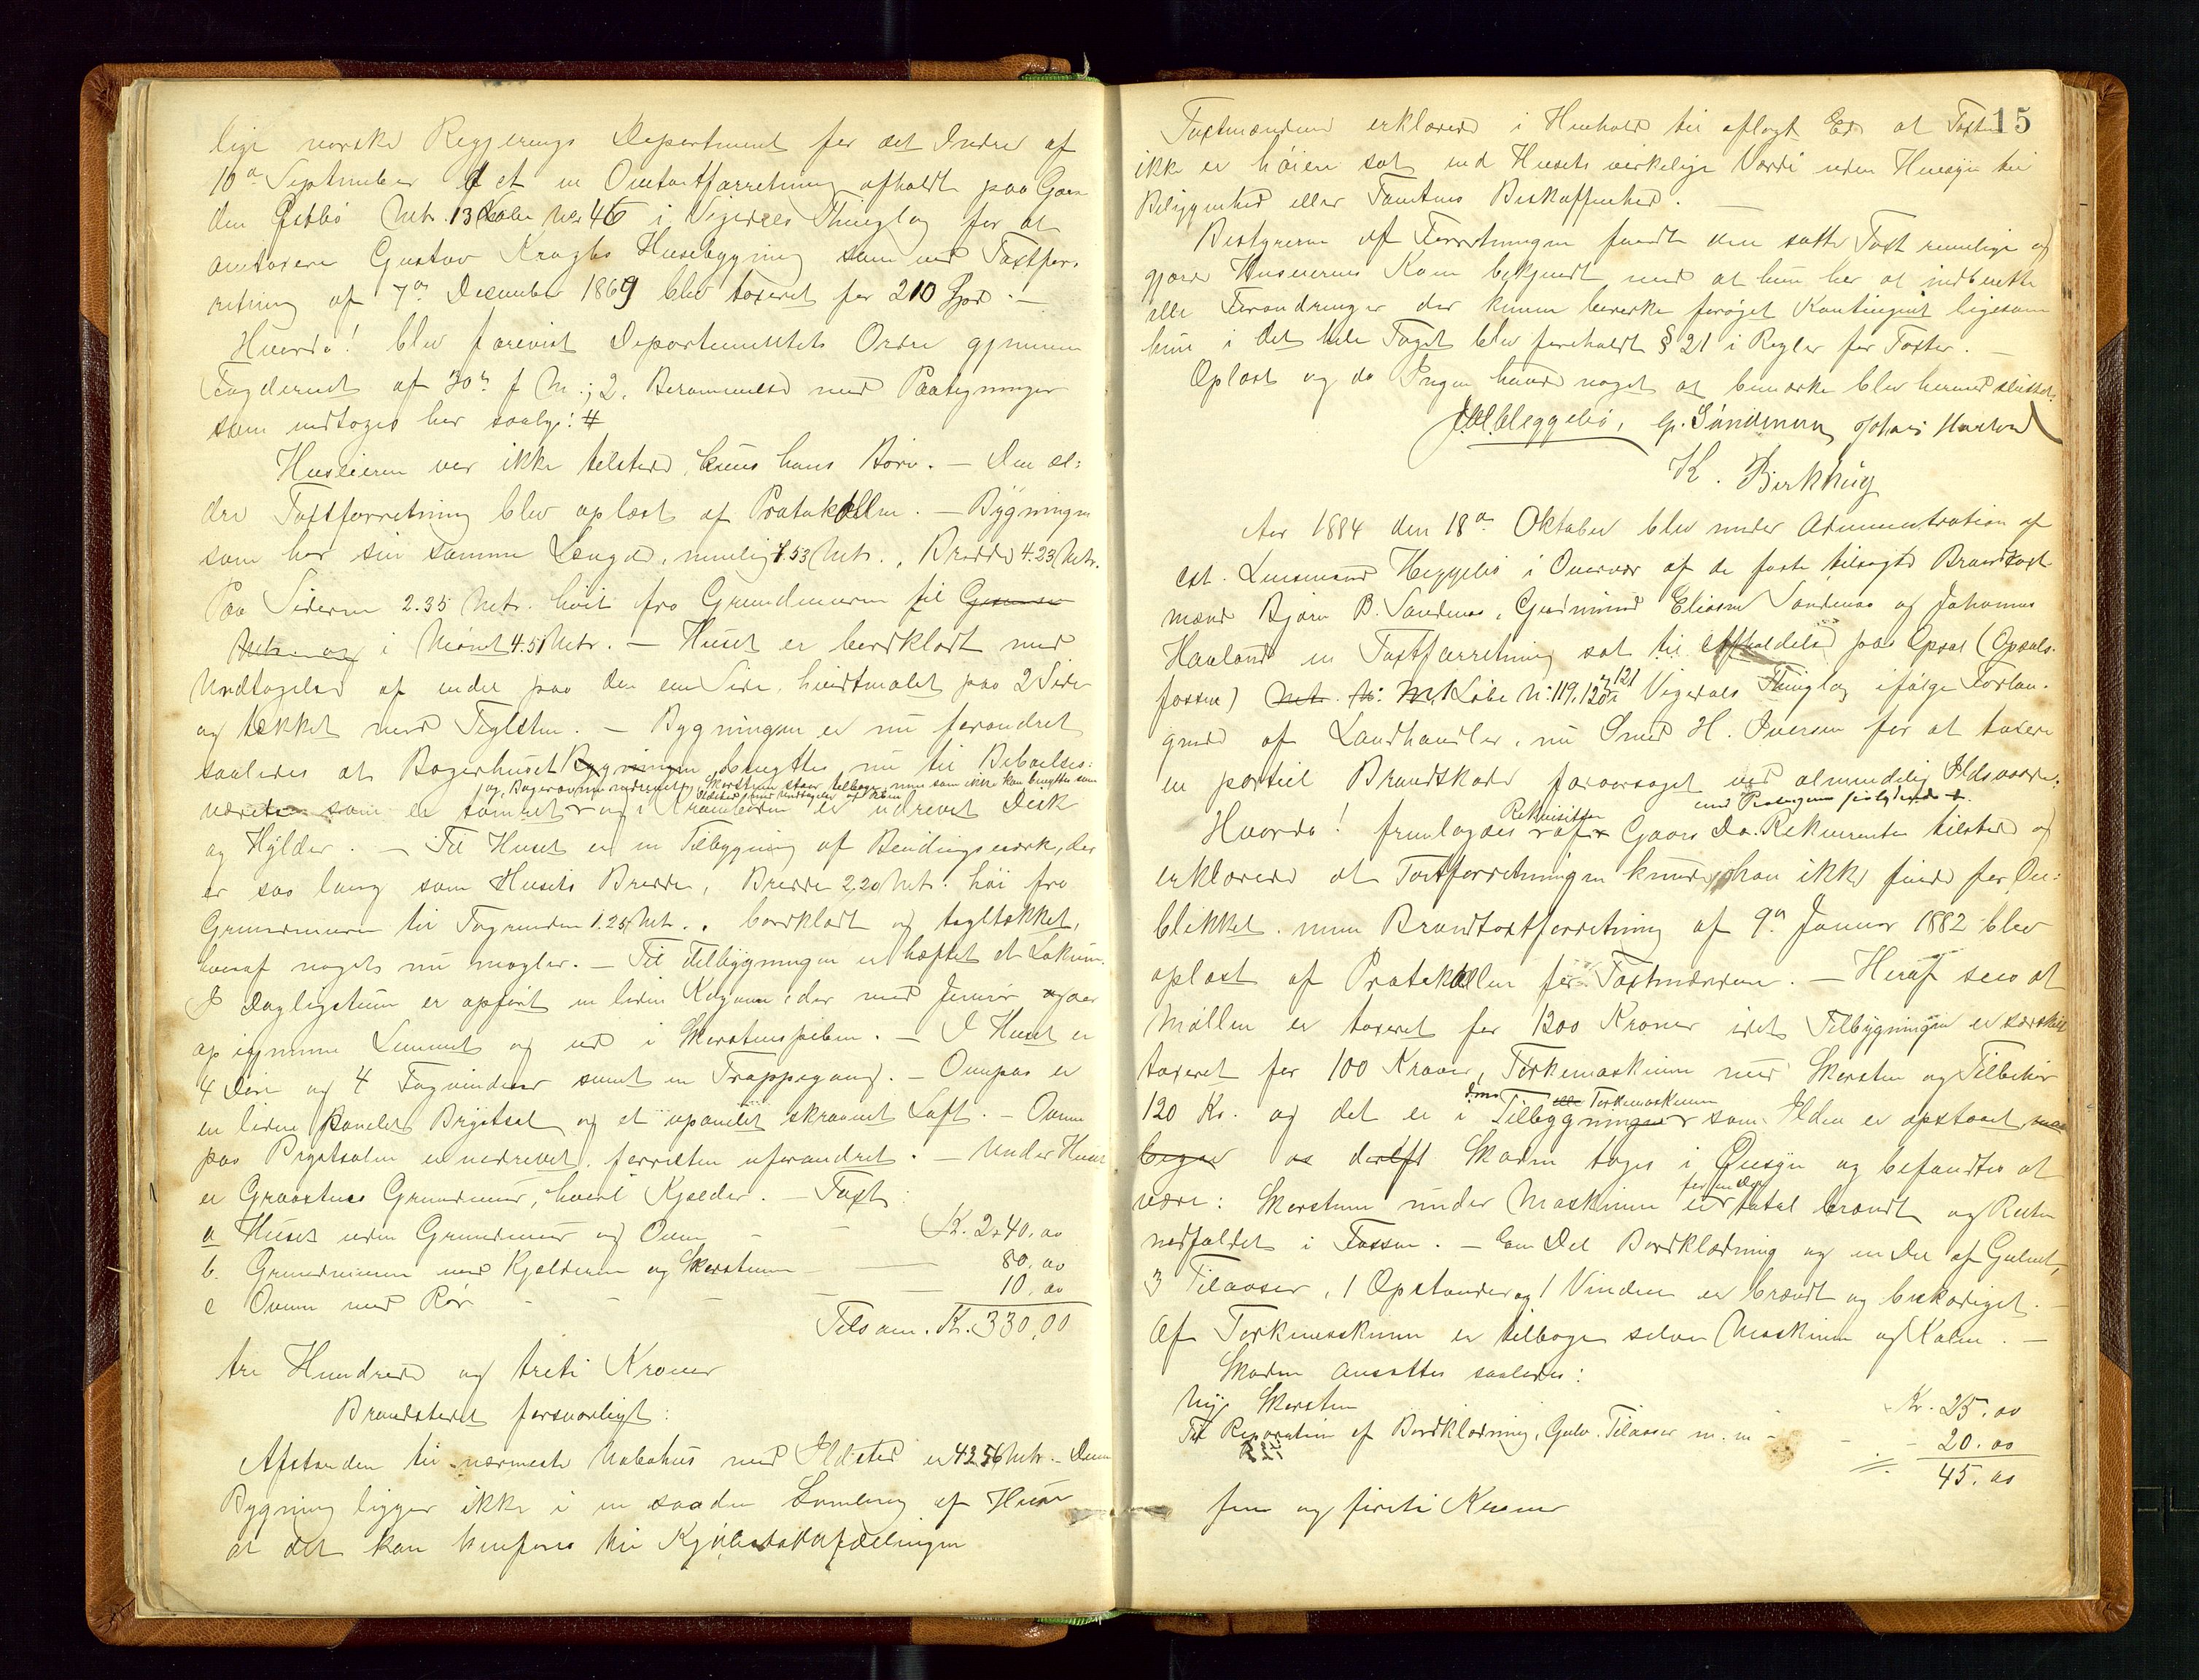 lige norske Regjerings Departement for det Indre af
10de September d et en Omtaxtforretning afholdt paa Gaar
den Østbø Mtr. 13 Løbe No 46 i Vigedals Thinglag for at
omtaxere Gustav Kragts Husebygning som ved Taxtfor-
retning af 7de December 1869 blev taxeret for 210 Spd. —
Hvorda! blev forevist Departementets Ordre gjennem
Fogderiet af 30te f M.; 2. Berammelse med Paategninger
som indtages her saalyd: #
Huseieren var ikke tilstede, kuns hans Børn. — Den æl:
dre Taxtforretning blev oplæst af Protokollen. — Bygningen
som har sin samme Længde, nemlig 7.53 Mtr., Bredde 4.23 Mtr.
Paa Siderne 2.35 Mtr. høit fra Grundmuren til
Mtr. og i Mønet 4.51 Mtr. — Huset er bordklædt med
Undtagelse af endel paa den ene Side, hvidtmalet paa 2 Side
og tækket med Teglsten. — Bygningen er nu forandret
saaledes at Bagerhuset Bygningen benyttes nu til Beboelses:
og Bagerovnen nedrevet, Skorsten staar tilbage, men som ikke kan benyttes som
Ildsted, med Undtagelse af
værelse som er tømret og i Kramboden er udrevet Disk
og Hylder. — Til Huset er en Tilbygning af Bindingsværk, der
er saa lang som Husets Bredde, Bredde 2,20 Mtr. høi fra
Grundmuren til Tagrenden 1.25 Mtr.. bordklædt og tegltækket,
hvoraf noget nu mangler. — Til Tilbygningen er hæftet et Lokum.
I Dagligstuen er opført en liden Kogeovn, der med Jernrør gaar
op igjennem Lemmet og ud i Skorstenspiben. — I Huset er
4 Døre og 4 Fagvinduer samt en Trappegang. — Ovenpaa er
en liden panelet Brystsal og et upanelet skraanet Loft. — Ovnen
paa Brystsalen er nedrevet, forresten uforandret. — Under Huset
er Graastens Grundmur, hvori Kjælder. — Taxt:
a Huset uden Grundmur og Ovne — Kr. 240,00
b. Grundmuren med Kjælderen og Skorstenen — 80,00
c Ovnen med Rør — 10,00
Tilsam. Kr. 330,00
tre Hundrede og treti Kroner
Brandstedet forsvarligt:
Afstanden til nærmeste Nabohus med Ildsted er 42.56 Mtr. — Denne
Bygning ligger ikke i en saadan Samling af Huse
at det kan henføres til Kjøbstadafdelingen
15
Taxtmændene erklærede i Henhold til aflagt Ed at Taxten
ikke er høiere sat end Husets virkelige Værdi uden Hensyn til
Beliggenhed eller Tomtens Beskaffenhed. —
Bestyreren af Forretningen fandt den satte Taxt rimelig og
gjorde Huseierens Kone bekjendt med at hun har at indberette
alle Forandringer der kunne bevirke forøget Kontingent ligesom
hun i det hele Taget blev foreholdt § 21 i Regler for Taxter. —
Oplæst og da Ingen havde noget at bemærke blev hermed sluttet.
Heggebø, G. Sandnæss Johans Havland
K. Birkhug
Aar 1884 den 18de Oktober blev under Administration af
cst. Lensmand Heggebø i Overvær af de faste tilsagte Brandtaxt
mænd Bjørn B. Sandnæs, Gudmund Eliasen Sandnæs og Johannes
Havland en Taxtforretning sat til Afholdelse paa Opsal (Opsals-
fossen) Mtr. No. Mt Løbe No 119, 120 og 121 i Vigedals Thinglag ifølge Forlan-
gende af Landhandler, nu Smed H. Iversen for at taxere
en partiel Brandskade foraarsaget ved almindelig Ildsvaade:
Hvorda! fremlagdes Rekvisition af Gaars Da. Rekvirenten tilsted og
med Paategning saalydende #.
erklærede at Taxtforretningen kunde han ikke finde for Øie:
blikket. men Brandtaxtforretning af 9de Januar 1882 blev
oplæst af Protokollen for Taxtmændene. — Heraf sees at
Møllen er taxeret for 1200 Kroner idet Tilbygningen er særskilt
taxeret for 100 Kroner, Tørkemaskinen med Skorsten og Tilbehør
120 Kr. og det er i dens Tilbygningen eller Tørkemaskinen som Ilden er opstaaet
Skaden toges i Øiesyn og befandtes at
være: Skorstenen under Maskinen er for en Del total brændt og Resten
nedfaldet i Fossen. — En Del Bordklædning og en Del af Gulvet,
3 Tilaaser, 1 Opstander og 1 Vindue er brændt og beskadiget. —
Af Tørkemaskinen er tilbage selve Maskinen og Kalen. —
Skaden ansattes saaledes:
Ny Skorsten Kr. 25,00
Til Reparation af Bordklædning, Gulv, Tilaaser m. m — 20,00
45,00
fem og firti Kroner